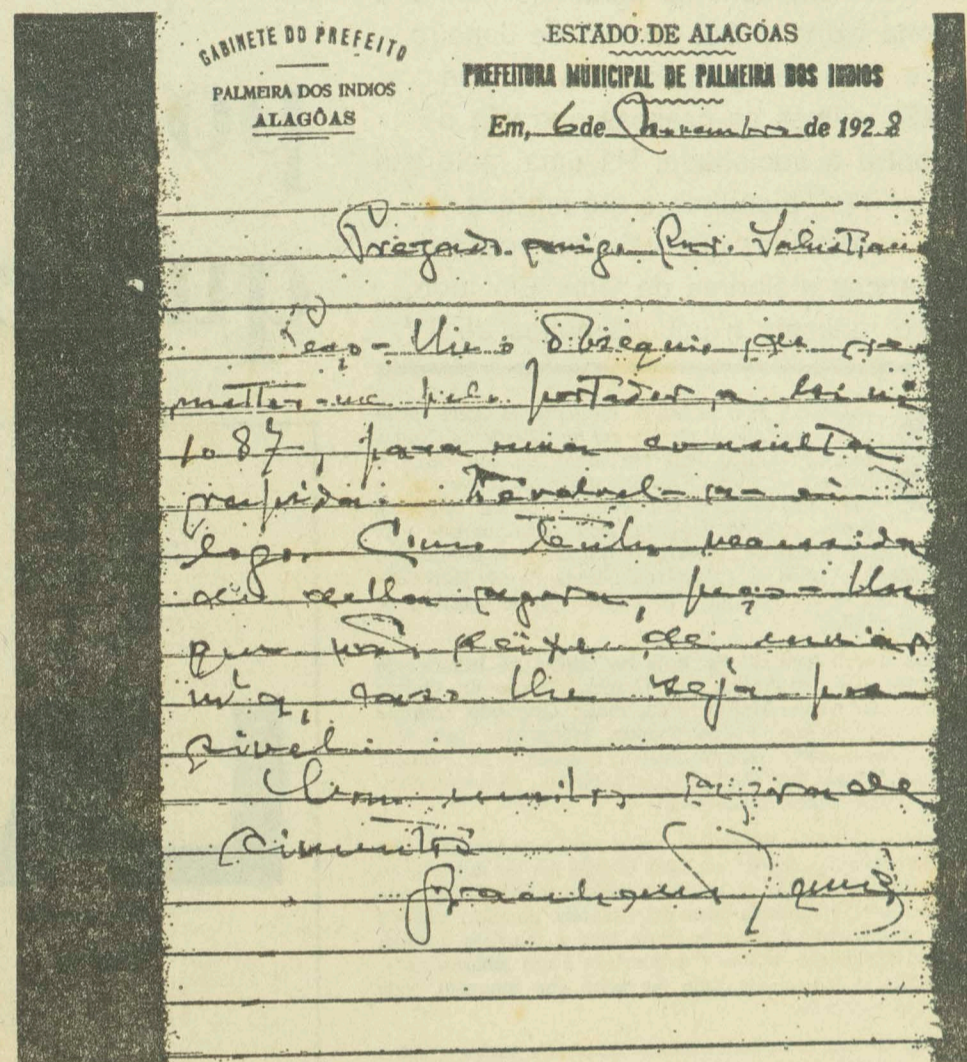 GABINETE DO PREFEITO
PALMEIRA DOS INDIOS
ALAGÔAS
ESTADO DE ALAGÔAS
PREFEITURA MUNICIPAL DE PALMEIRA DOS INDIOS
Em, 6 de Novembro de 1928
Prezado amigo Salustiano
Peço-lhe o obsequio de re-
metter-me pelo portador a lei nº
1087, para uma consulta
rapida.
logo. Como tenho necessida
de della agora, peço-lhe
que não deixe de enviar
m'a, caso lhe seja pos-
sivel.
Com muitos agrade
cimentos
Graciliano Ramos